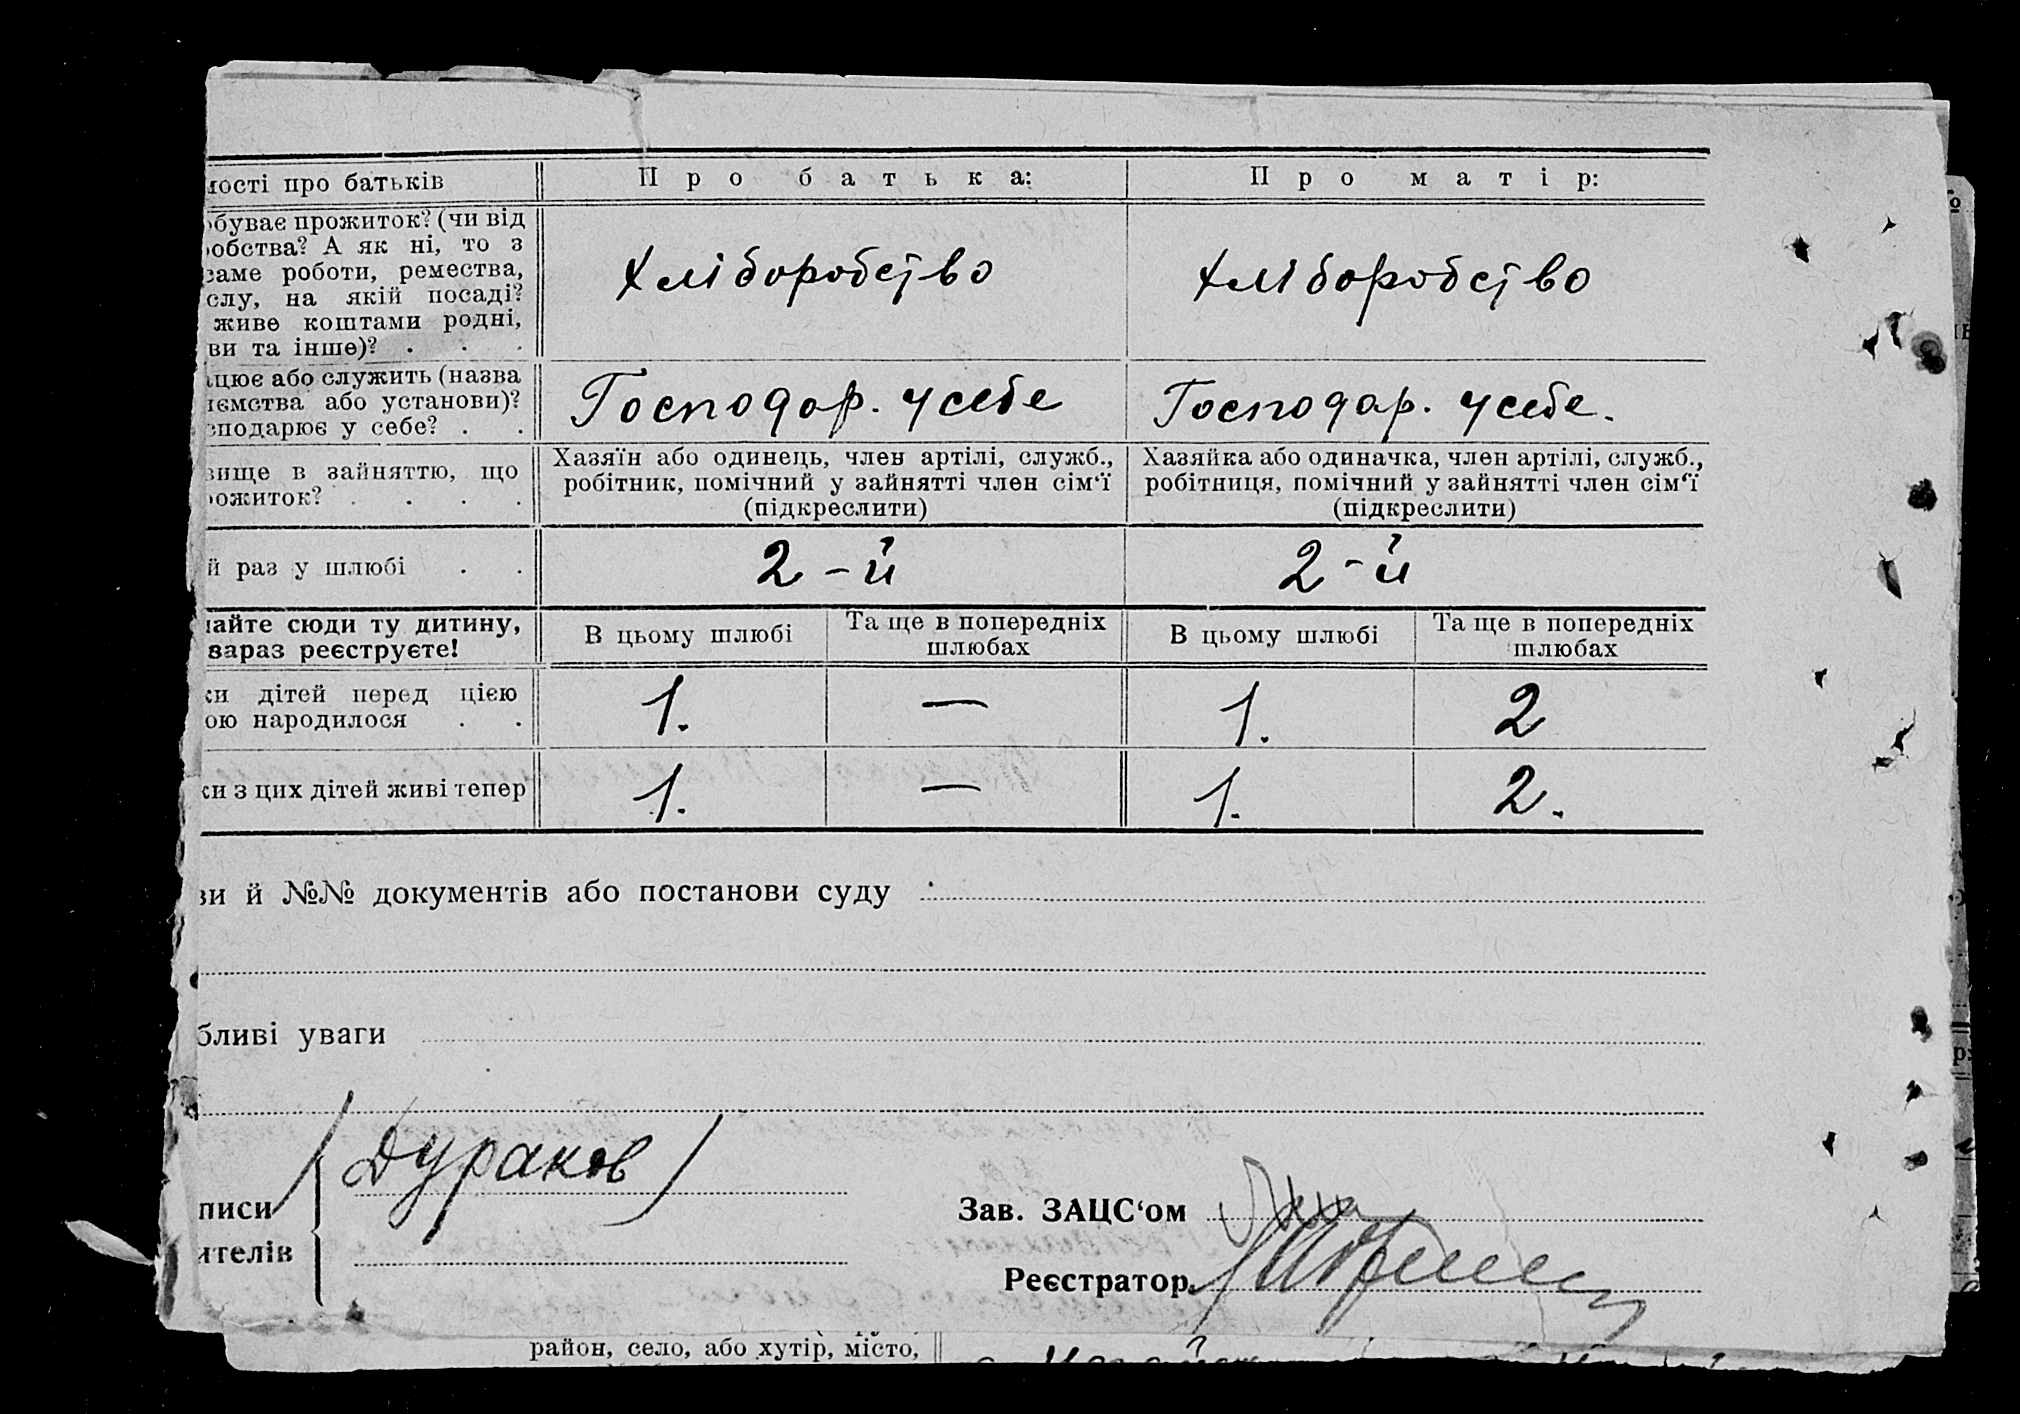 мості про батьків
Про батька:
Про матір:
обуває прожиток? (чи від
робства? А як ні, то з
саме роботи, ремества,
слу, на якій посаді?
живе коштами родні,
ви та інше)? . . .
Хліборобство
Хліборобство
ацює або служить (назва
иємства або установи)?
сподарює у себе? . .
Господар. у себе
Господар. у себе.
вище в зайняттю, що
рожиток? . . . .
Хазяїн або одинець, член артілі, служб.,
робітник, помічний у зайнятті член сім‘ї
(підкреслити)
Хазяйка або одиначка, член артілі, служб.,
робітниця, помічний у зайнятті член сім‘ї
(підкреслити)
й раз у шлюбі . .
2-й
2-й
чайте сюди ту дитину,
зараз реєструєте!
В цьому шлюбі
Та ще в попередніх
шлюбах
В цьому шлюбі
Та ще в попередніх
шлюбах
ки дітей перед цією
ою народилося . .
1.
—
1.
2
ки з цих дітей живі тепер
1.
—
1.
2.
ви й №№ документів або постанови суду
бливі уваги
(Дураков)
писи
ителів
Зав. ЗАЦС‘ом
Реєстратор
район, село, або хутір, місто,